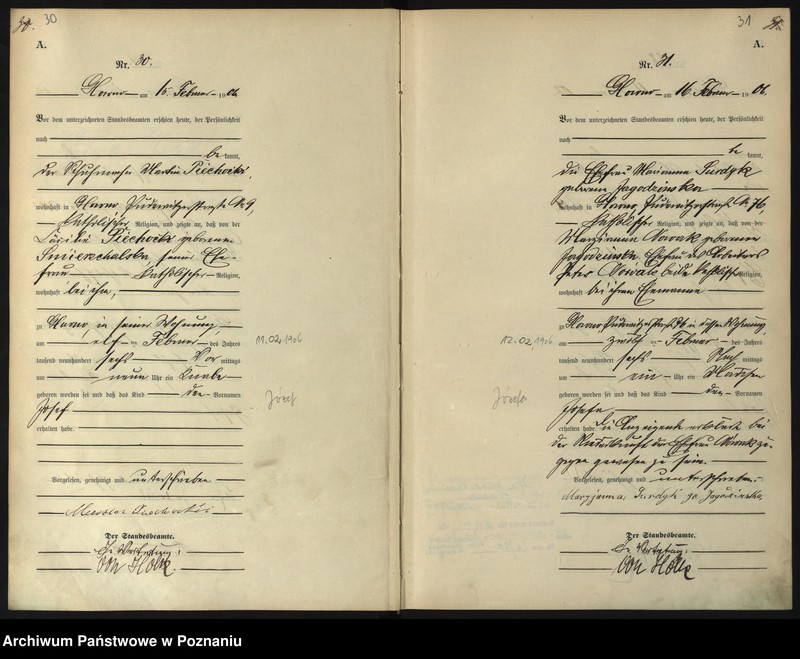 30
A.
Nr. 30.
am 15. Februar 1906.
Vor dem unterzeichneten Standesbeamten erschien heute, der Persönlichkeit
nach
be kannt,
der Schuhmacher Martin Piechocki,
wohnhaft in
9,
katholischer Religion, und zeigte an, daß von der
Piechocki geborenen
seiner Ehe-
frau katholischer Religion,
wohnhaft bei ihm,
zu in seiner Wohnung,
am elf ten Februar des Jahres
tausend neunhundert sechs Vor mittags
um neun Uhr ein Knabe
geboren worden sei und daß das Kind den Vornamen
Josef
erhalten habe.
Vorgelesen, genehmigt und unterschrieben
Der Standesbeamte.
In Vertretung:
11.02.1906
Józef
31
A.
Nr. 31.
am 16. Februar 1906.
Vor dem unterzeichneten Standesbeamten erschien heute, der Persönlichkeit
nach
be kannt,
die Ehefrau Marianna Surdyk
geborene Jagodzinska
wohnhaft in
76,
katholischer Religion, und zeigte an, daß von der
Marianna Nowak geborenen
Jagodzinska, Ehefrau des Arbeiters
Peter Nowak, beide katholischer Religion,
wohnhaft bei ihrem Ehemanne
zu 76 in dessen Wohnung,
am zwölf ten Februar des Jahres
tausend neunhundert sechs Nach mittags
um ein Uhr ein Mädchen
geboren worden sei und daß das Kind den Vornamen
Josefa
erhalten habe. Die Anzeigende erklärte bei
der Niederkunft der Ehefrau Nowak zu-
gegen gewesen zu sein.
Vorgelesen, genehmigt und unterschrieben.
Maryjanna Surdyk
Der Standesbeamte.
In Vertretung:
12.02.1906
Józefa
Archiwum Państwowe w Poznaniu